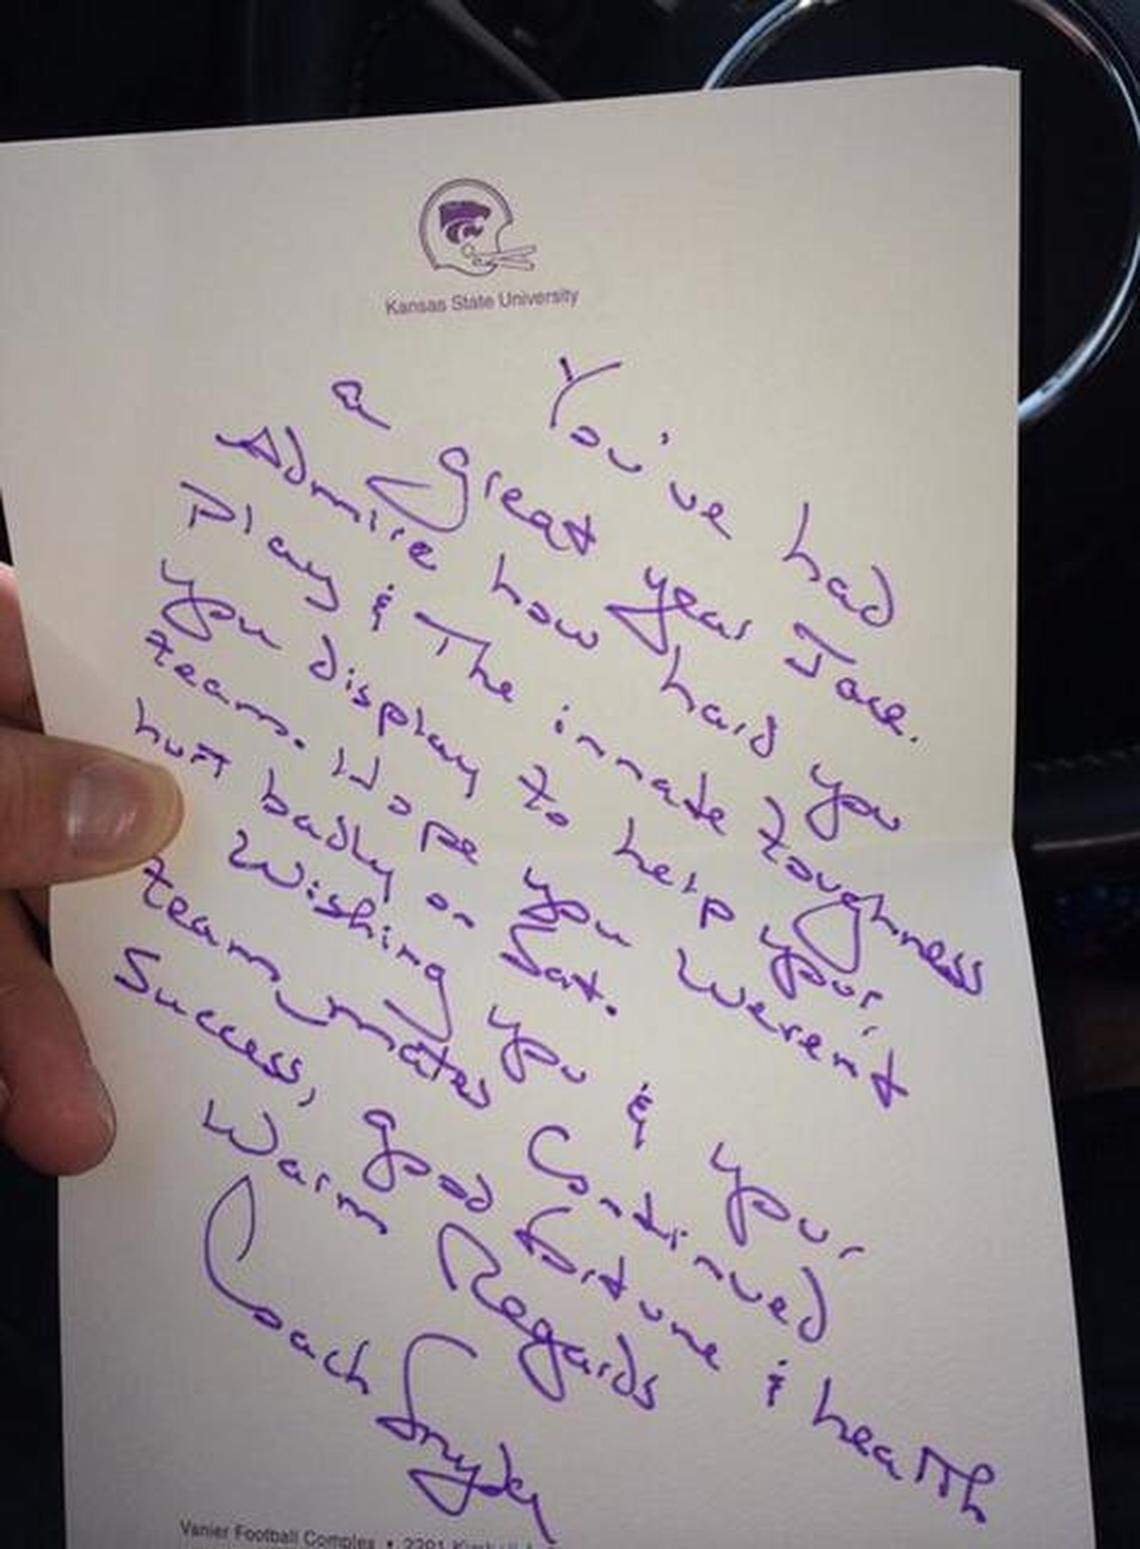 Kansas State University
You've had
a great year Jace.
Admire how hard you
play & The innate toughness
you display to help your
team. Hope you weren't
hurt badly on Sat.
Wishing you & your
team mates continued
Success, good fortune & health
Warm Regards
Coach Snyder
Vanier Football Complex • 2201